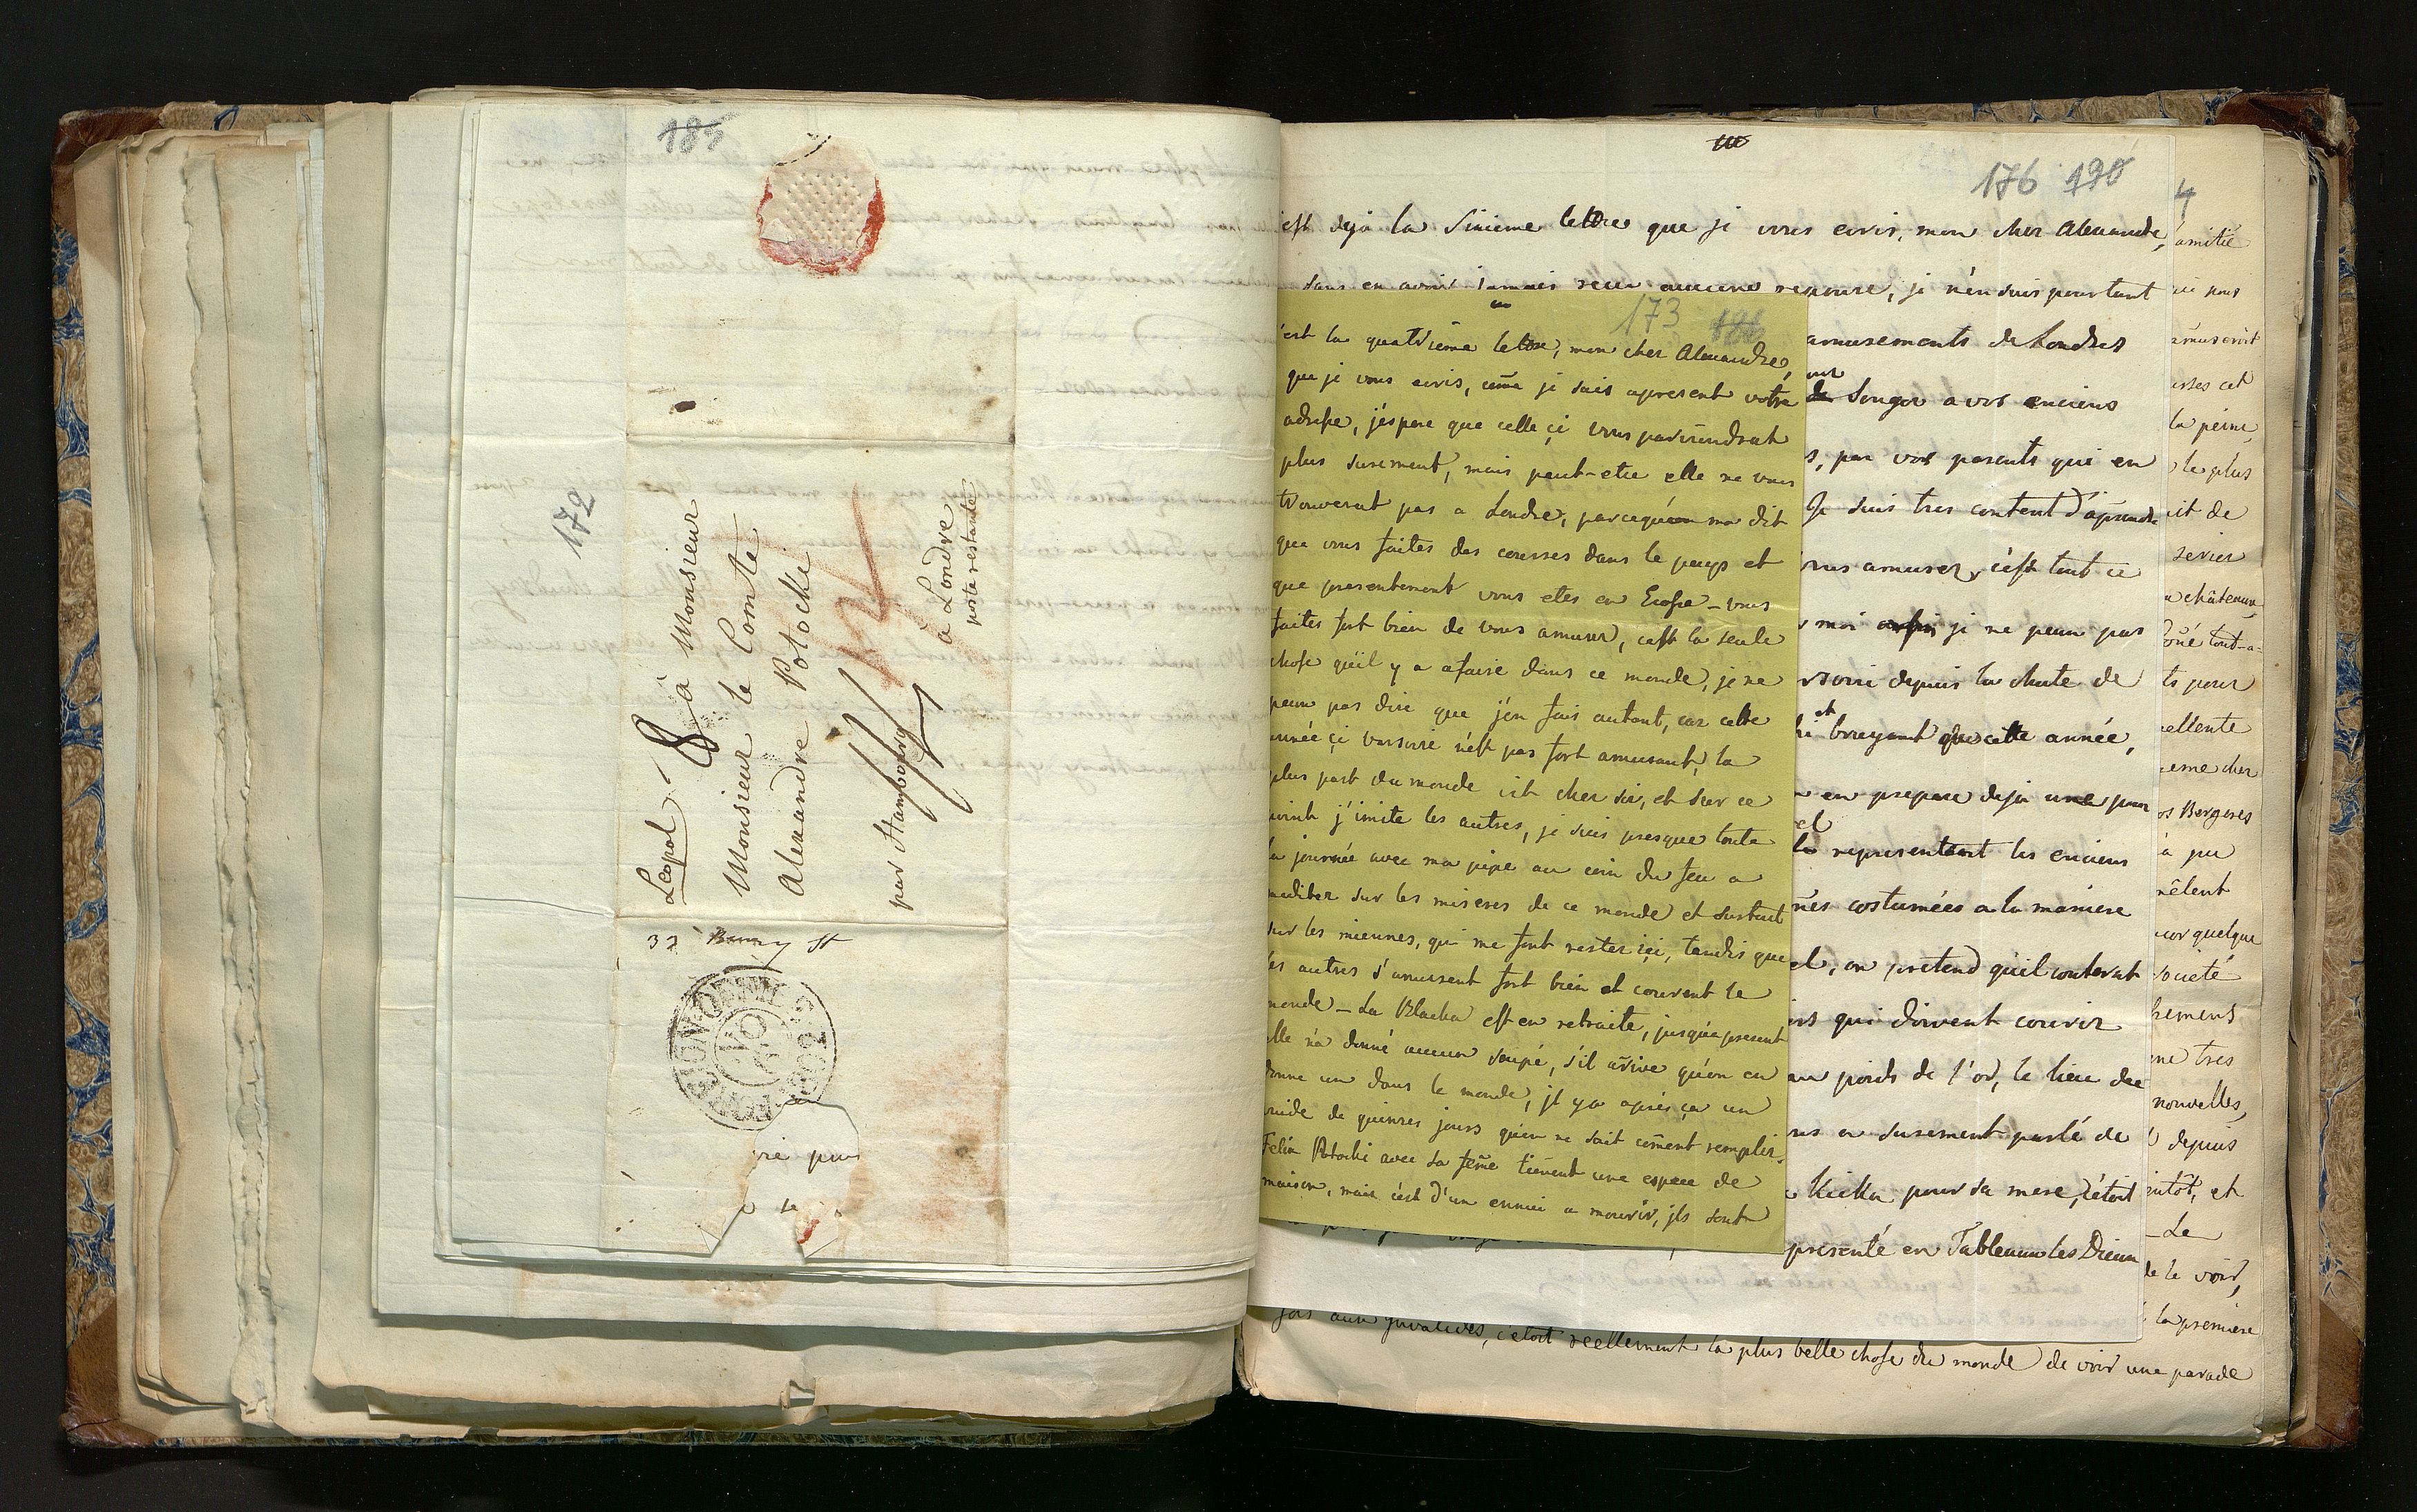 185
172
Leopol
8
à Monsieur
Monsieur le Comte
Alexandre Potocki
à Londre
poste restante
par Hambourg
33 Bury St
FOREIGN OFFICE
1802
rie pour
se
176 190
est deja la sixieme lettre que je vous ecris, mon cher Alexandre,
sans en avoir jamais reçu aucune reponse, je n'en suis pourtant
amusements de Londres
de songer a vos enciens
s, par vos parents qui en
Je suis tres content d'aprendre
vous amuser, c'est tout ce
moi je ne peux pas
rsovie depuis la chute de
et
bruyant que cette année,
en prepare deja une pour
el
la representant les enciens
nes costumées a la maniere
el, on pretend qu'il couterat
rs qui doivent courir
au poids de l'or, le lieu de
a surement parlé de
Kicka pour sa mere, c'étoit
presenté en Tableaux les Dieux
173 186
'est la quatrieme lettre, mon cher Alexandre,
que je vous ecris, come je sais apresent votre
adresse, j'espere que celle çi vous parviendrat
plus surement, mais peut-etre elle ne vous
trouverat pas a Londre, parcequ'on ma dit
que vous faites des courses dans le pays et
que presentement vous etes en Ecosse - vous
faites fort bien de vous amuser, c'est la seule
chose qu'il y a afaire dans ce monde, je ne
peux pas dire que j'en fais autant, car cette
année çi varsovie n'est pas fort amusant, la
plus part du monde est cher soi, et sur ce
point j'imite les autres, je suis presque toute
la journée avec ma pipe au coin du feu a
mediter sur les miseres de ce monde et surtout
sur les miennes, qui me font rester içi, tandis que
les autres s'amusent fort bien et courent le
monde - La Blacha est en retraite, jusqu'apresent
elle n'a donné aucun soupé, s'il arive qu'on en
donne un dans le monde, il y a après ça un
vuide de quinzes jours qu'on ne sait coment remplir.
Felix Potocki avec sa feme tienent une espece de
maison, mais c'est d'un ennui a mourir, ils sont
4
amitié
amuseroit
la peine,
le plus
it de
châteaux
tout-a-
ts pour
cellente
eme cher
os Bergeres
à pu
mêlent
cor quelque
société
ne tres
nouvelles,
depuis
entôt, et
- Le
de le voir,
la premiere
fois aux invalides, c'étoit reellement la plus belle chose du monde de voir une parade